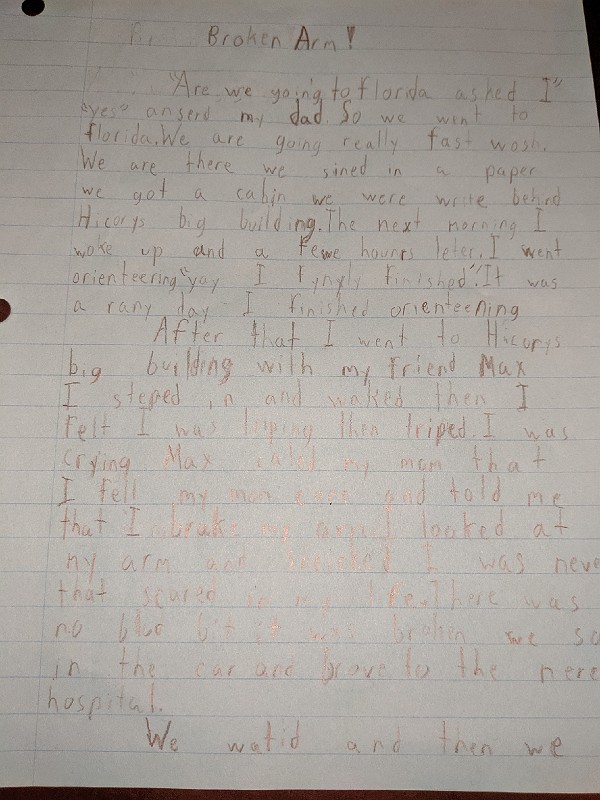 Broken Arm!
"Are we going to florida asked I"
"yes" anserd my dad. So we went to
florida. We are going really fast wosh.
We are there we sined in a paper
we got a cabin we were write behind
Hicorys big building. The next morning I
woke up and a fewe hounrs leter. I went
orienteering "yay I fynyly finished". It was
a rany day I finished orienteening
After that I went to Hicorys
big building with my friend Max
I steped in and waked then I
felt I was triping then triped. I was
crying Max my mom that
I fell my mom and told me
that I brake my looked at
my arm and I was neve
that scared in my life. There was
no blud bit it was broken we so
in the car and brove to the nere
hospital.
We watid and then we